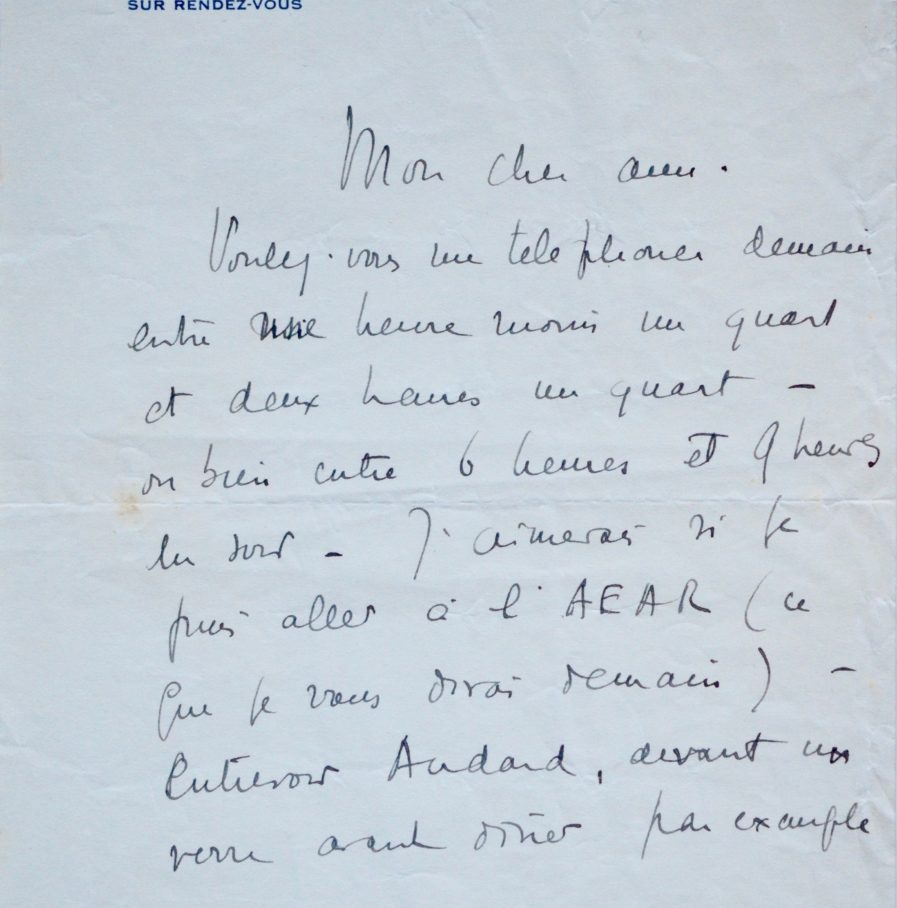 SUR RENDEZ-VOUS
Mon cher ami.
Voulez-vous me telephoner demain
entre une heure moins un quart
et deux heures un quart –
ou bien entre 6 heures et 9 heures
du soir – J'aimerais si je
puis aller à l'AEAR (ce
que je vous dirai demain) –
Entrevoir Audard, devant un
verre avant diner par exemple